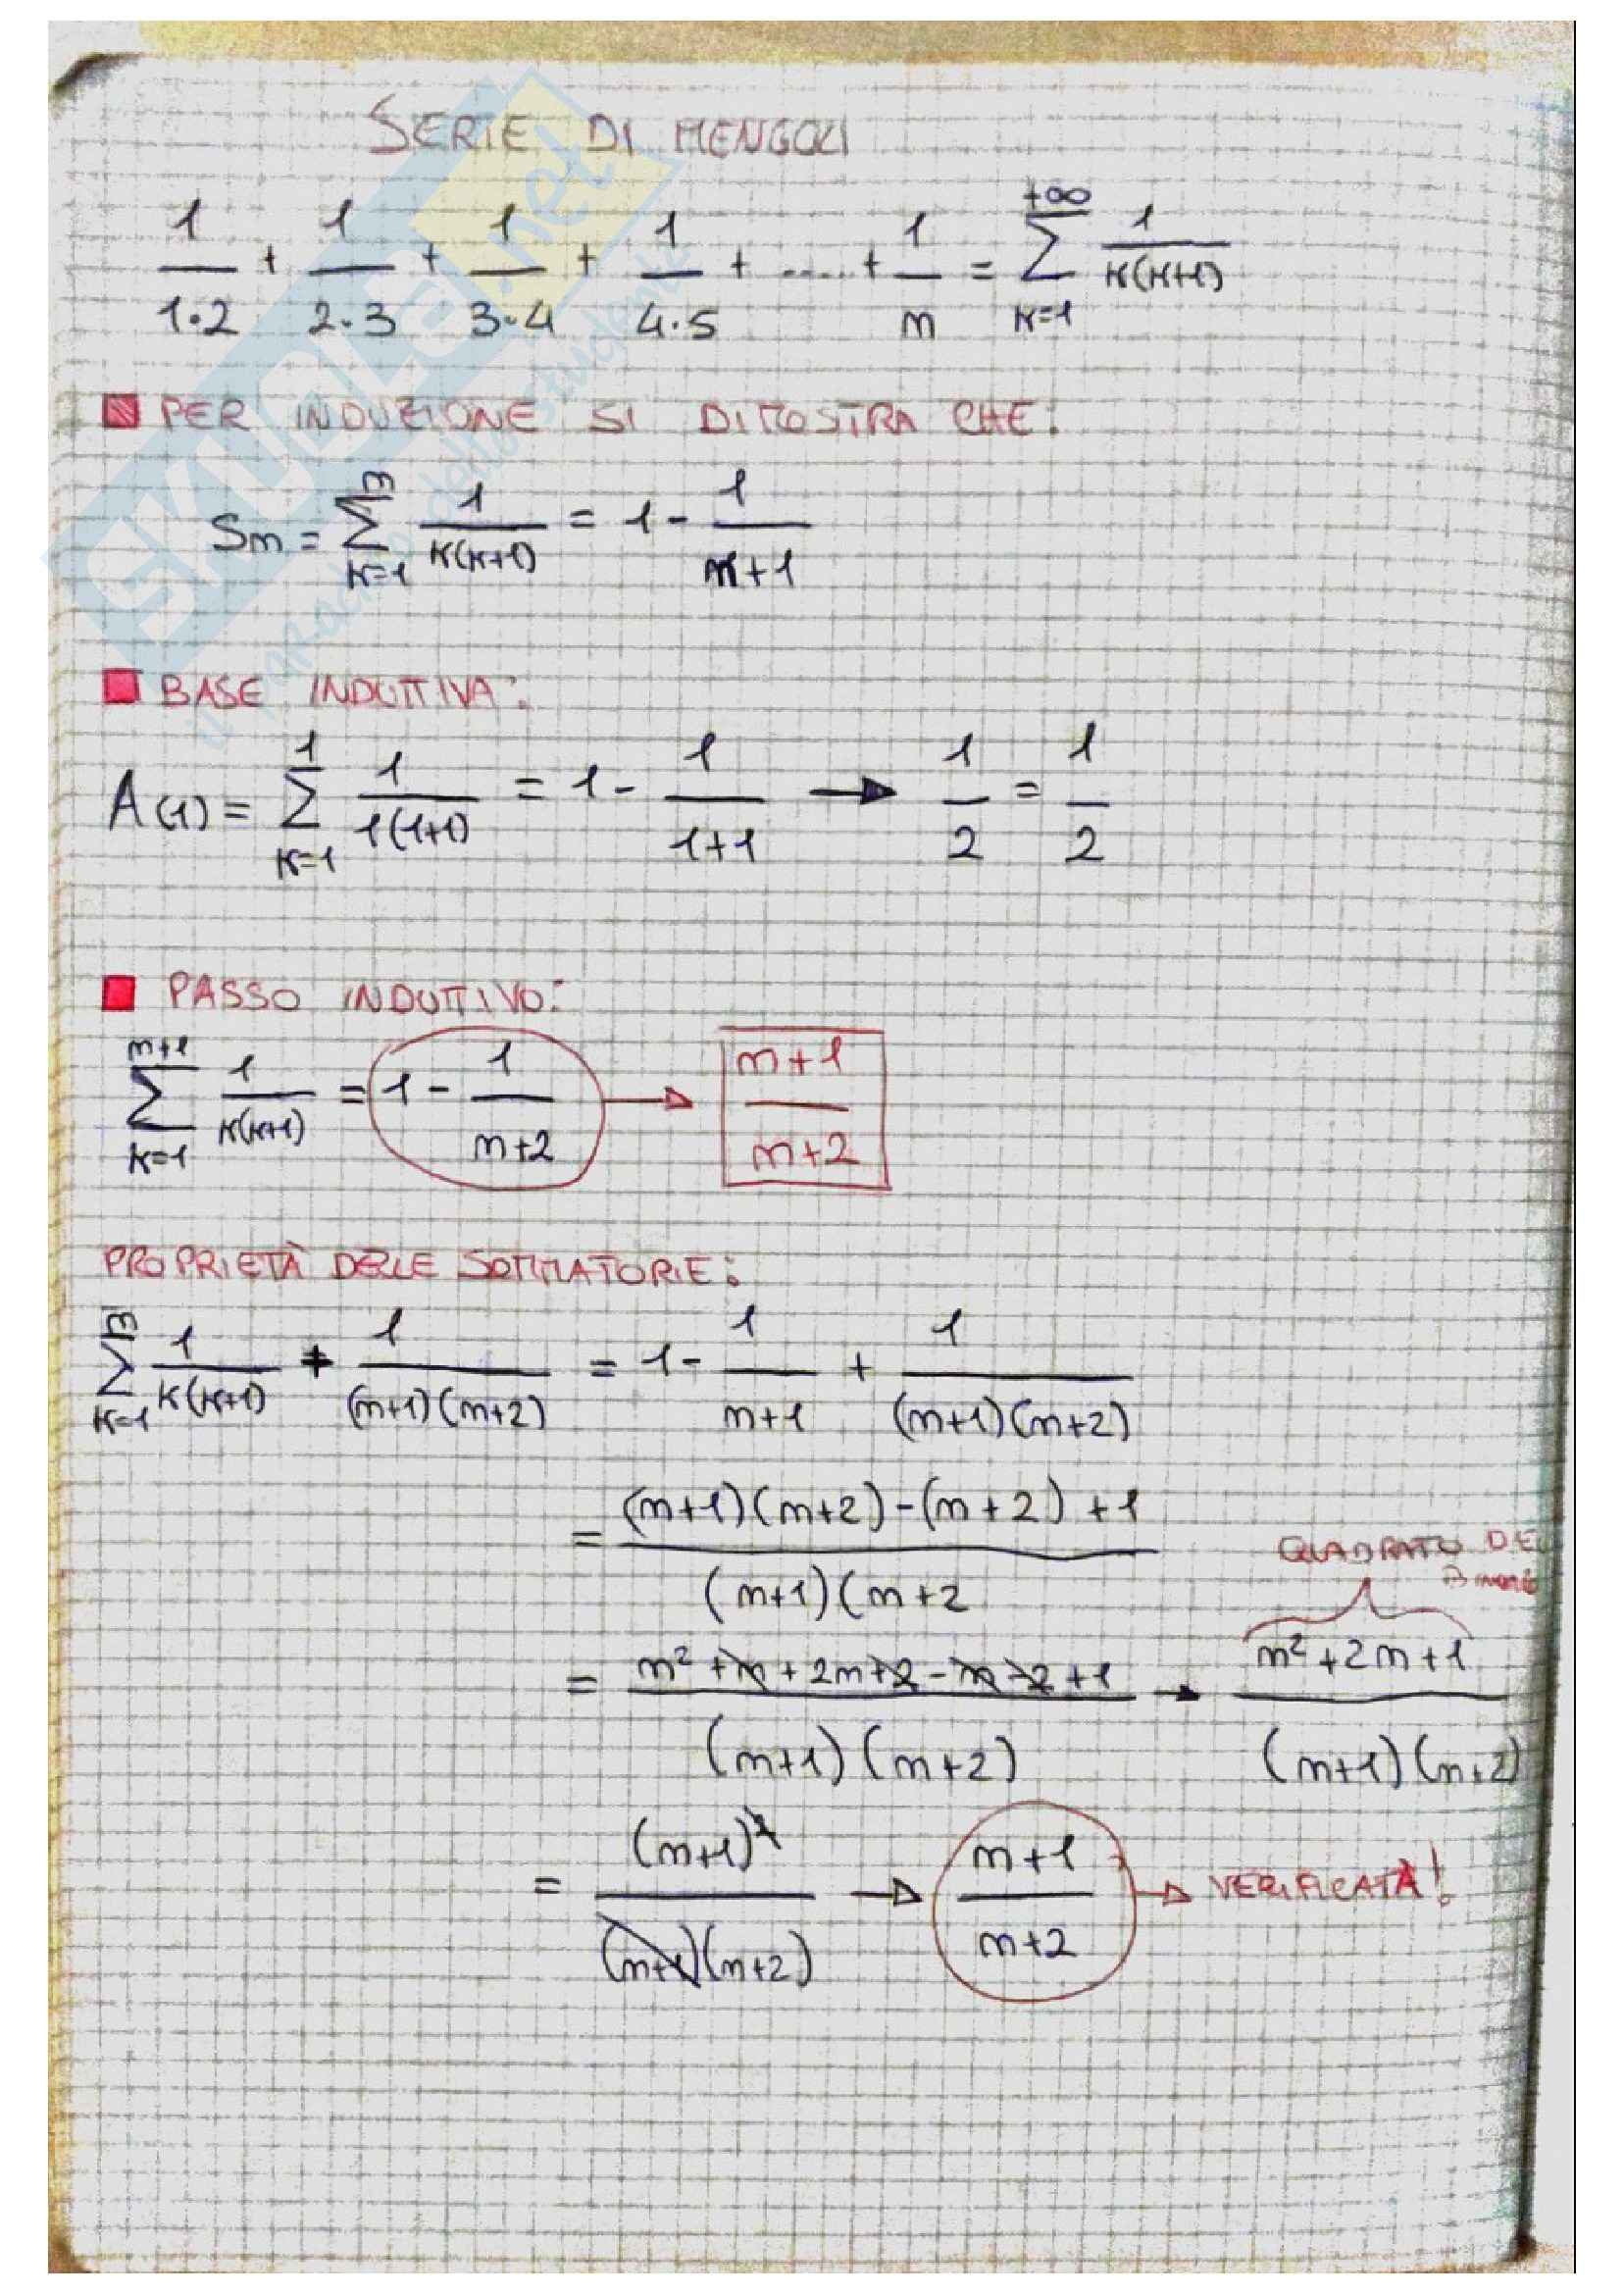 SERIE DI MENGOLI
1/(1·2) + 1/(2·3) + 1/(3·4) + 1/(4·5) + ..... + 1/n = +∞ Σ K=1 1/(K(K+1))
PER INDUZIONE SI DIMOSTRA CHE:
Sn = n Σ K=1 1/(K(K+1)) = 1 - 1/(n+1)
BASE INDUTTIVA:
A(1) = 1 Σ K=1 1/(1(1+1)) = 1 - 1/(1+1) → 1/2 = 1/2
PASSO INDUTTIVO:
n+1 Σ K=1 1/(K(K+1)) = 1 - 1/(n+2) → (n+1)/(n+2)
PROPRIETÀ DELLE SOMMATORIE:
n Σ K=1 1/(K(K+1)) + 1/((n+1)(n+2)) = 1 - 1/(n+1) + 1/((n+1)(n+2))
= ((n+1)(n+2)-(n+2)+1)/((n+1)(n+2
QUADRATO DEL
BINOMIO
= (n²+n+2n+2-n-2+1)/((n+1)(n+2)) → (n²+2n+1)/((n+1)(n+2))
= (n+1)²/((n+1)(n+2)) → (n+1)/(n+2) → VERIFICATA!
SKUOLA.net